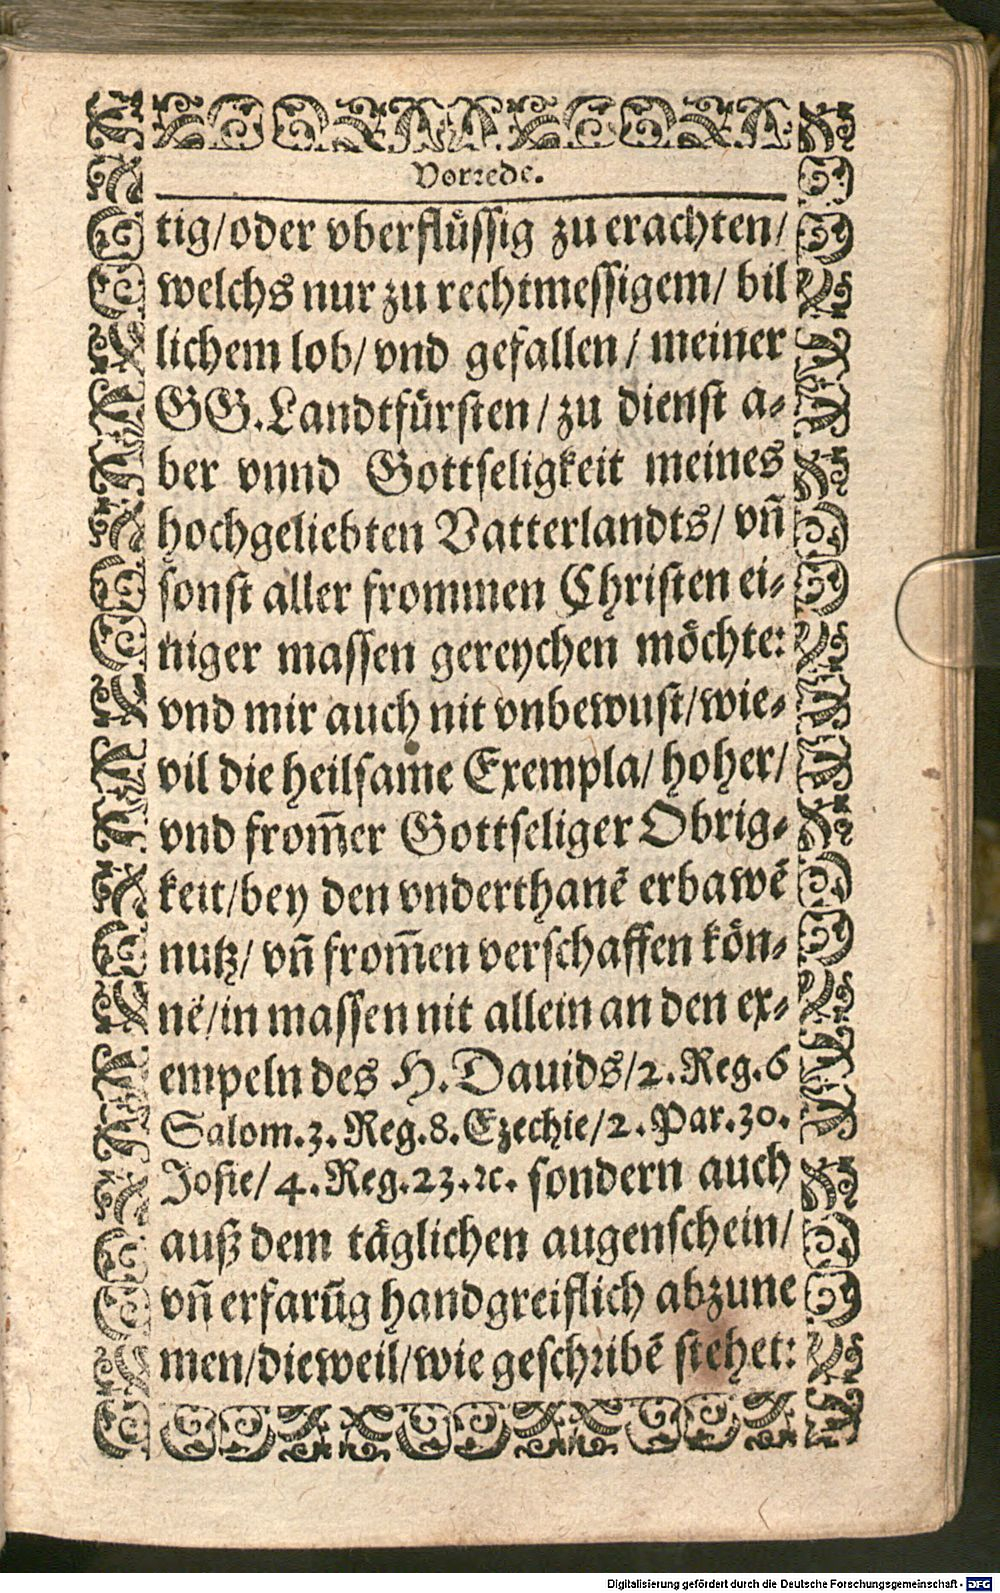 Vorrede.
tig/oder vberflüssig zu erachten/
welchs nur zu rechtmessigem/ bil
lichem lob/ vnd gefallen/ meiner
GG. Landtfürsten/ zu dienst a-
ber vnnd Gottseligkeit meines
hochgeliebten Vatterlandts/ vñ
sonst aller frommen Christen ei-
niger massen gereychen möchte:
vnd mir auch nit vnbewust/ wie-
vil die heilsame Exempla/ hoher/
vnd from̃er Gottseliger Obrig-
keit/bey den vnderthanẽ erbawẽ
nutz/ vñ from̃en verschaffen kön-
nẽ/in massen nit allein an den ex-
empeln des H. Dauids/2. Reg. 6
Salom. 3. Reg. 8. Ezechie/2. Par. 30.
Josie/ 4. Reg. 23. ꝛc. sondern auch
auß dem täglichen augenschein/
vñ erfarũg handgreiflich abzune
men/dieweil/wie geschribẽ stehet:
Digitalisierung gefördert durch die Deutsche Forschungsgemeinschaft - DFG